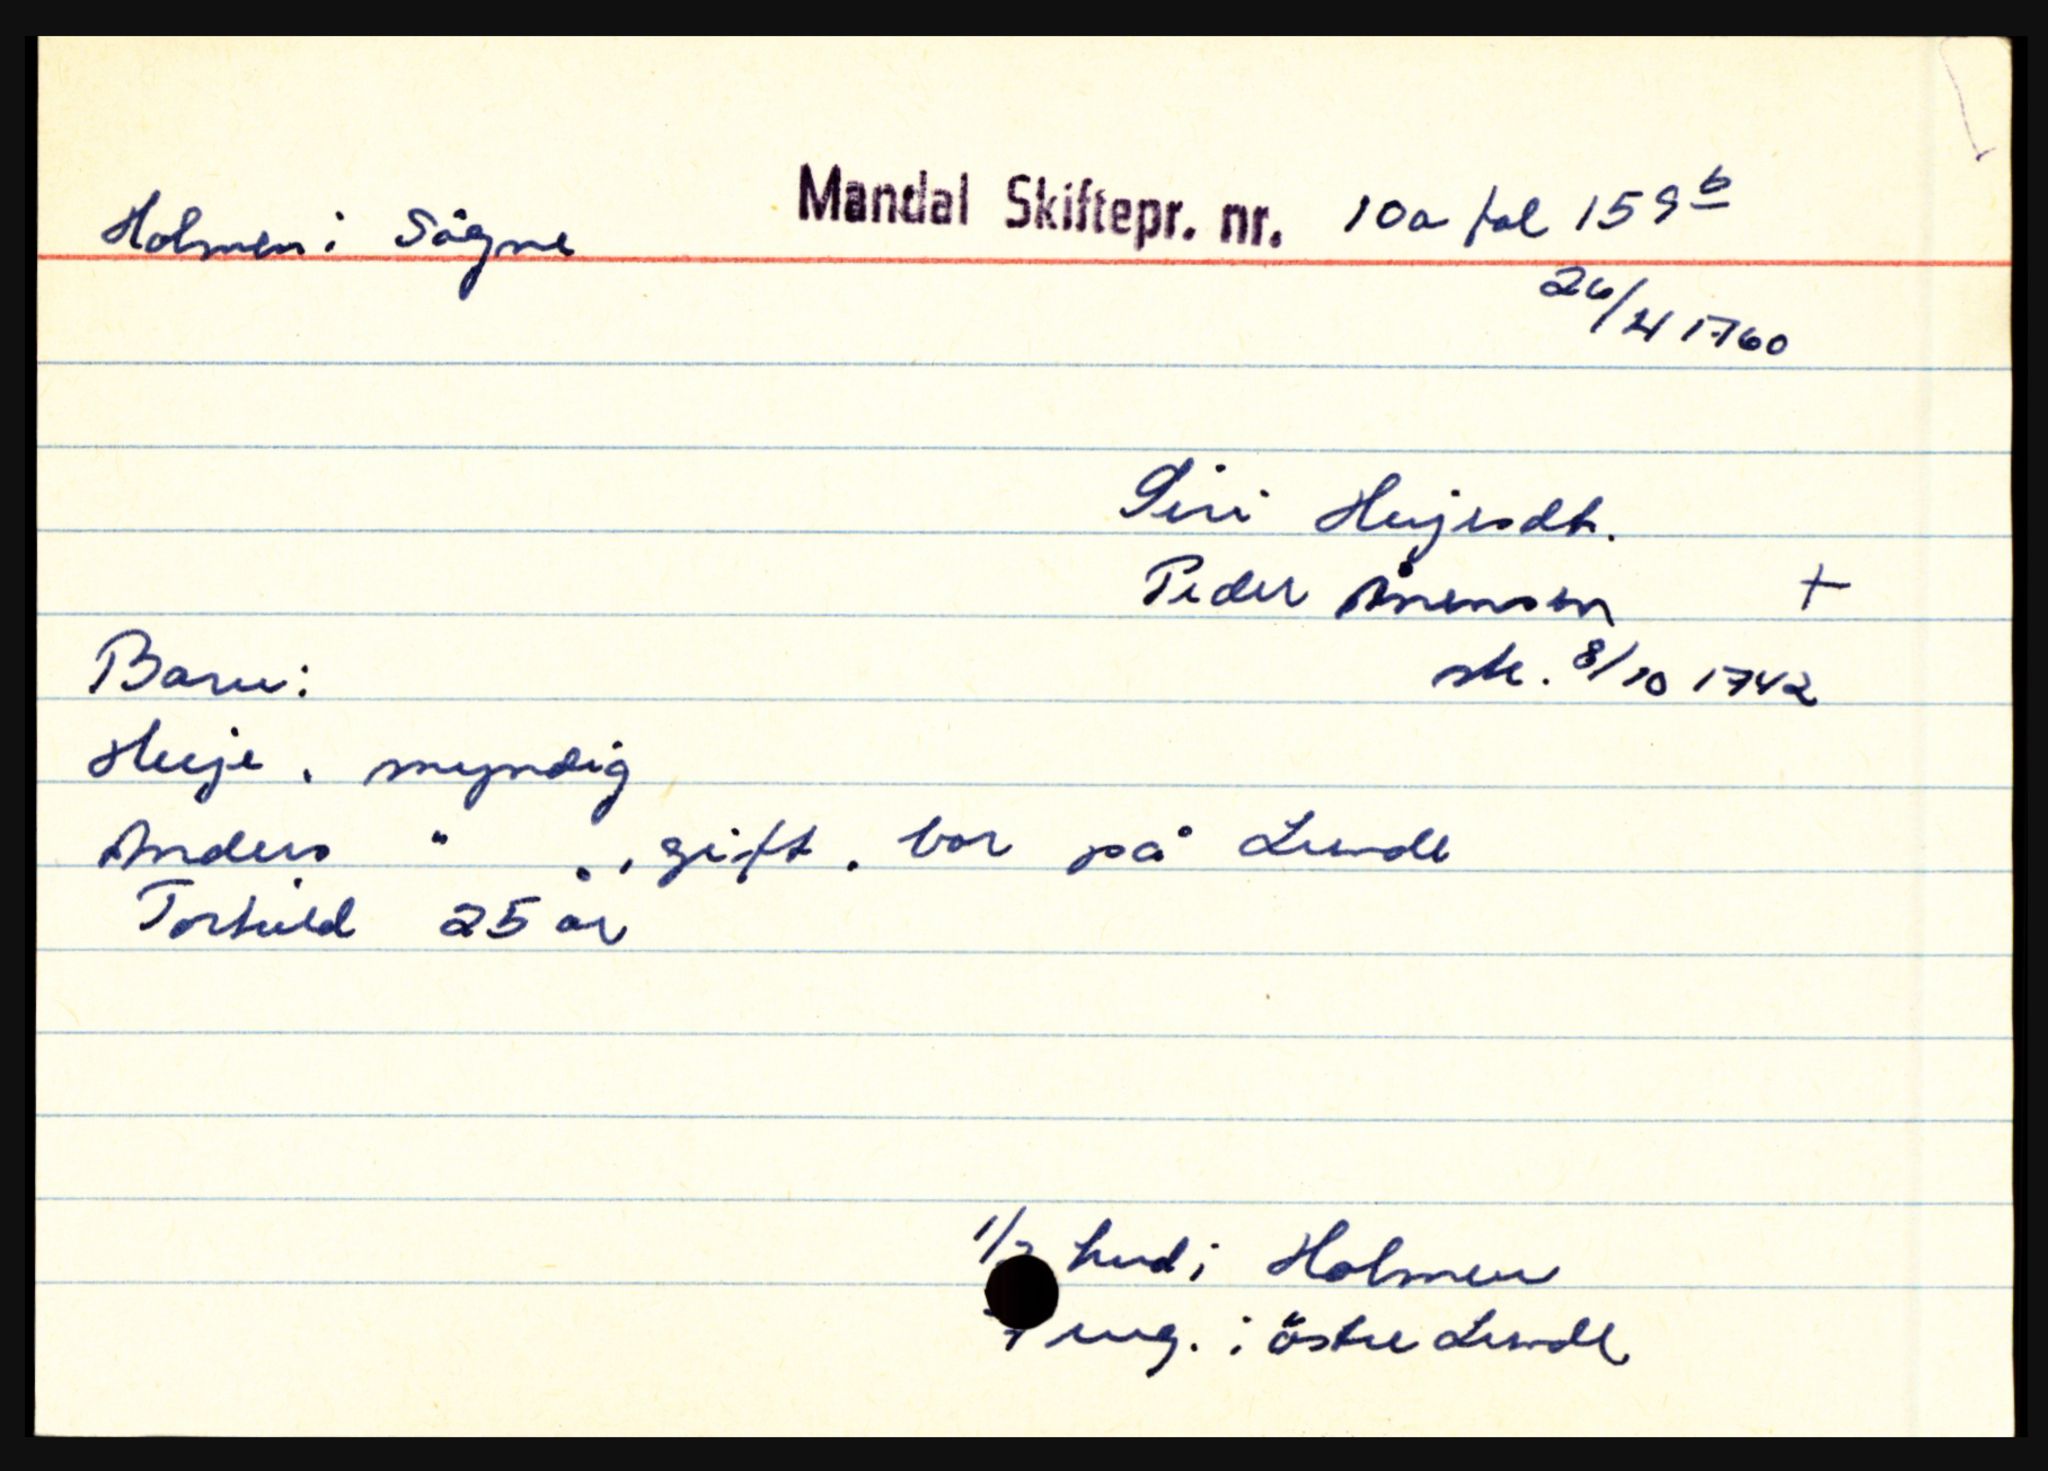 Holmen i Sögne Mandal Skiftepr. nr. 10a fol 159 b
26/4 1760
Siri Heijesdt.
Peder Ånensen +
sk. 8/10 1742
Barn:
Heije, myndig
Anders " , gift. bor på Lunde
Torkild 25 år
1/2 hud i Holmen
eng. i östre Lunde